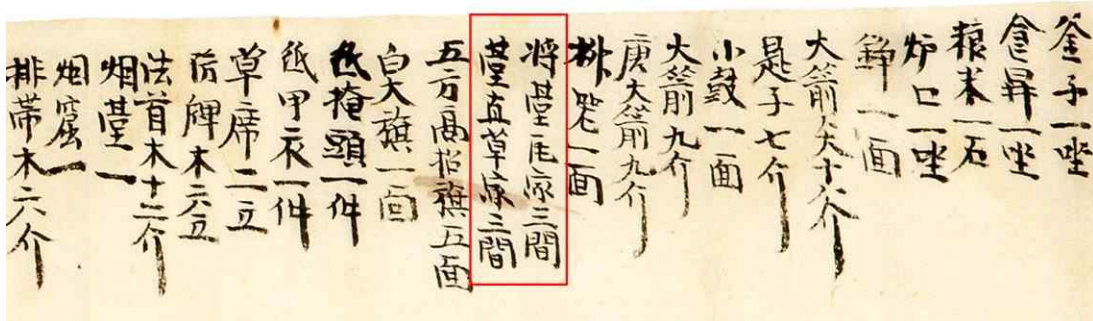 釜子一坐
食鼎一坐
粮米一石
炉口一坐
錚一面
大箭
匙子七介
小鼓一面
大箭九介
庚大箭九介
一面
将䑓瓦家三間
䑓直草家三間
五方高招旗五面
白大旗一面
紙掩頭一件
紙甲衣一件
草席二立
防牌木六立
法首木十二介
烟䑓一
烟窟一
排帶木六介